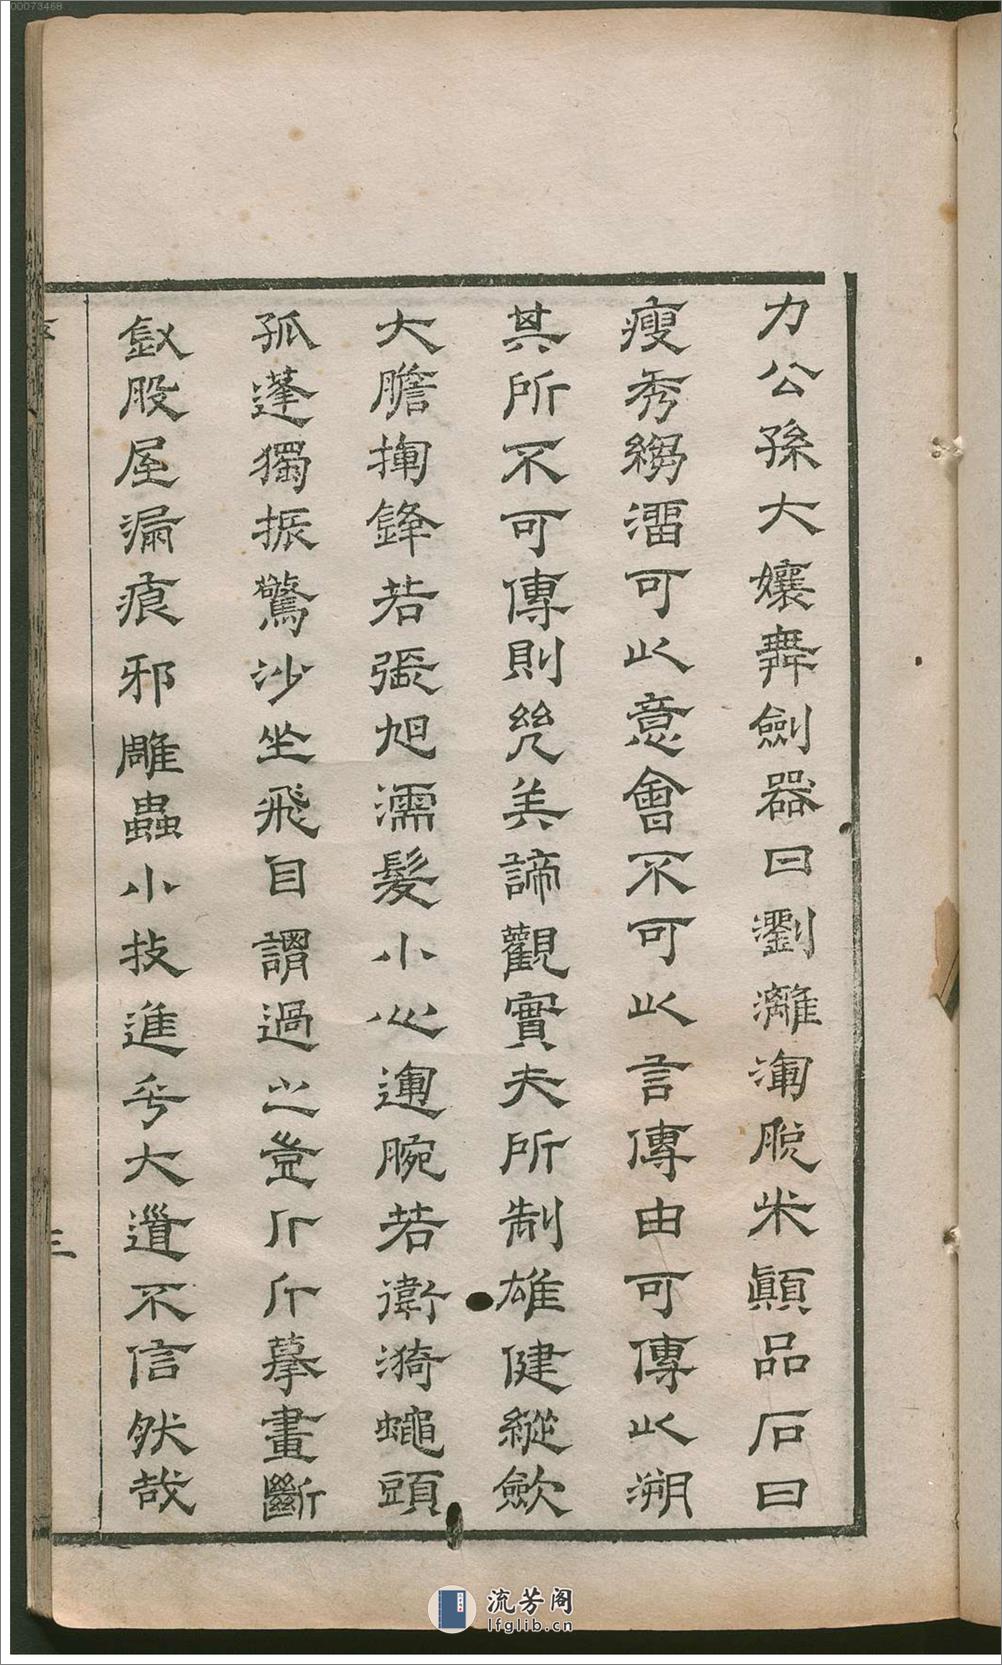 力公孫大孃舞劍器曰瀏灕渾脫米顚品石曰
瘦秀縐溜可以意會不可以言傳由可傳以溯
其所不可傳則幾美諦觀實夫所制雄健縱歛
大膽揮鋒若張旭濡髮小心運腕若衛漪蠅頭
孤蓬獨振驚沙坐飛自謂過之豈斤斤摹畫斷
釵股屋漏痕邪雕蟲小技進乎大道不信然哉
三
流芳阁
lfglib.cn
00073468